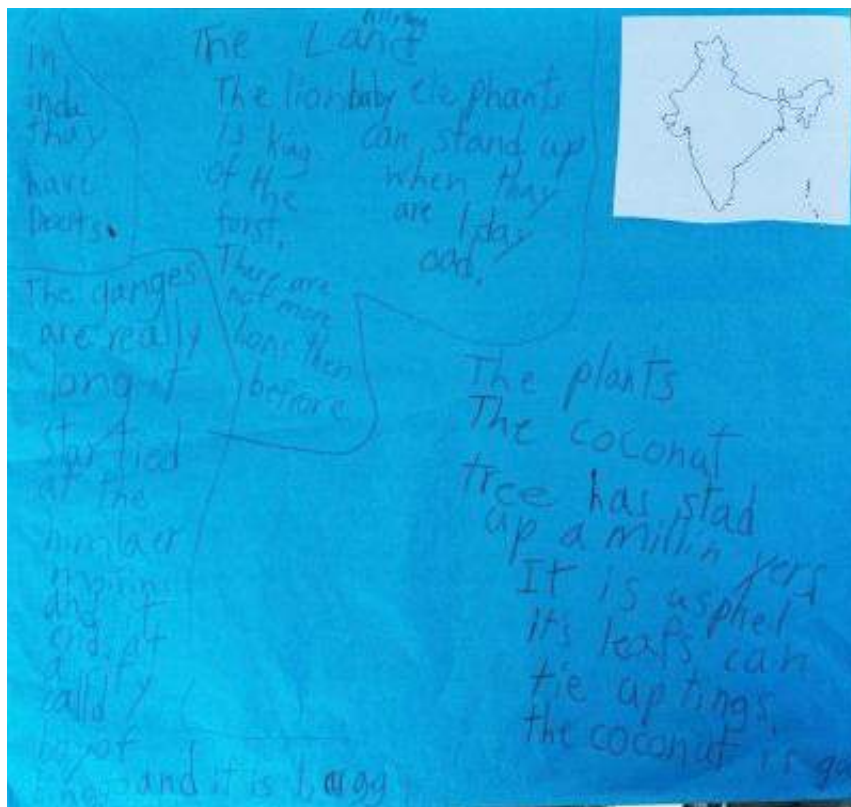 The Land
In
inda
thay
have
The lion
is king
of the
forst.
There are
not more
lions then
before
baby elephants
can stand up
when thay
are 1 day
old.
The ganges
are really
long it
startied
at the
himlaer
and it
end at
a
calld
bay of
and it is
The plants
The coconut
tree has stad
up a millin yers
It is
it's leafs can
tie up tings.
the coconut is